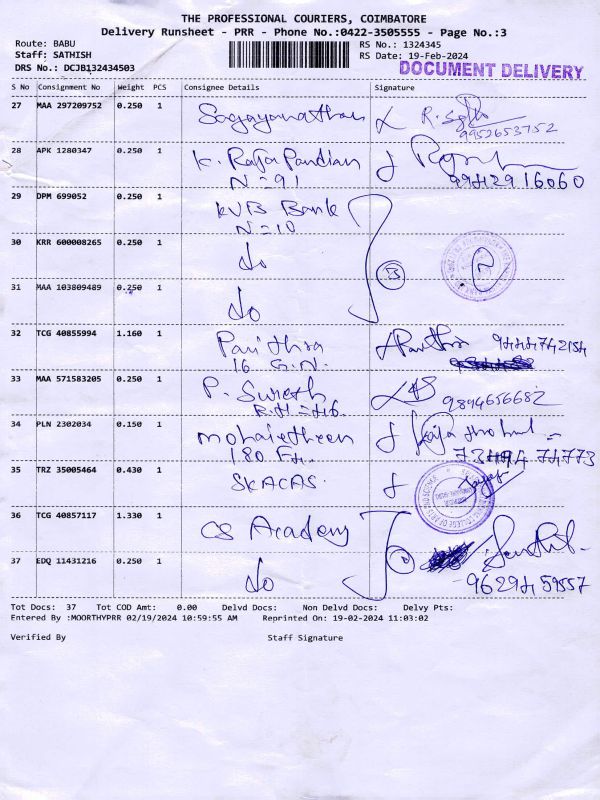 THE PROFESSIONAL COURIERS, COIMBATORE
Delivery Runsheet - PRR - Phone No.:0422-3505555 - Page No.:3
Route: BABU
Staff: SATHISH
DRS No.: DCJB132434503
RS No.: 1324345
RS Date: 19-Feb-2024
DOCUMENT DELIVERY
S No Consignment No Weight PCS Consignee Details Signature
27 MAA 297209752 0.250 1 Sagayanathan
9952653752
28 APK 1280347 0.250 1 K. Raja Pandian
N=91 9942916060
29 DPM 699052 0.250 1 KVB Bank
N=10
30 KRR 600008265 0.250 1 do
31 MAA 103809489 0.250 1 do
32 TCG 40855994 1.160 1 Pavithra 9444742154
16 G.N.
33 MAA 571583205 0.250 1 P. Suresh 9894656682
R.H=46.
34 PLN 2302034 0.150 1 mohaideen
180 Ft. 73494 74773
35 TRZ 35005464 0.430 1 SKACAS
36 TCG 40857117 1.330 1 CS Academy
37 EDQ 11431216 0.250 1 do
96294 59557
Tot Docs: 37 Tot COD Amt: 0.00 Delvd Docs: Non Delvd Docs: Delvy Pts:
Entered By :MOORTHYPRR 02/19/2024 10:59:55 AM Reprinted On: 19-02-2024 11:03:02
Verified By Staff Signature